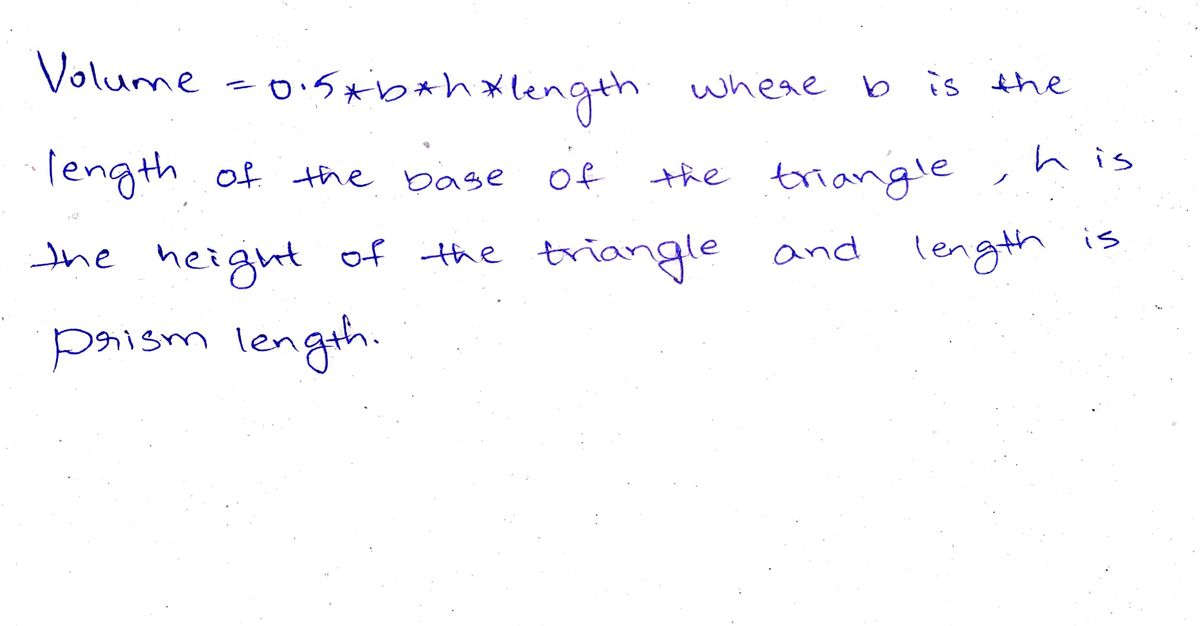 Volume = 0.5*b*h*length where b is the
length of the base of the triangle, h is
the height of the triangle and length is
prism length.